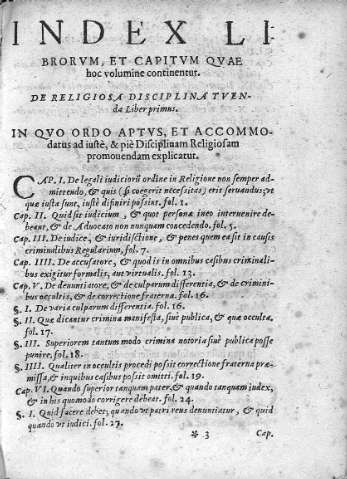 INDEX LI-
BRORVM, ET CAPITVM QVAE
hoc volumine continentur.
DE RELIGIOSA DISCIPLINA TVEN-
da Liber primus.
IN QVO ORDO APTVS, ET ACCOMMO-
datus ad iustè, & piè Disciplinam Religiosam
promouendam explicatur.
CAP. I. De legali iudiciorũ ordine in Religione non semper ad-
mittendo, & quis (si coegerit necesitas) erit seruandus: vt
quæ iusta sunt, iustè difiniri posint. fol. 1.
Cap. II. Quid sit iudicium, & quot personæ ineo interuenire de-
beant, & de Aduocato non nunquam concedendo. fol. 5.
Cap. III. De iudice, & iuridictione, & penes quem ea sit in causis
criminalibus Regularium, fol. 7.
Cap. IIII. De accusatore, & quod is in omnibus casibus criminali-
bus exigitur formalis, aut virtualis. fol. 13.
Cap. V. De denuntiatore, & de culparum differentia, & de crimini-
bus occultis, & de correctione fraterna. fol. 16.
§. I. De varia culparum differentia. fol. 16.
§. II. Quæ dicantur crimina manifesta, siuè publica, & quæ occulta,
fol. 17.
§. III. Superiorem tantum modo crimina notoria siuè publica posse
punire. fol. 18.
§. IIII. Qualiter in occultis procedi possit correctione fraterna præ-
missa, & in quibus casibus possit omitti. fol. 19.
Cap. VI. Quando superior tanquam pater, & quando tanquam iudex,
& in his quomodo corrigere debeat. fol. 24.
§. I. Quid facere debet, quando vt patri reus denuntiatur, & quid
quando vt iudici. fol. 27.
* 3 Cap.